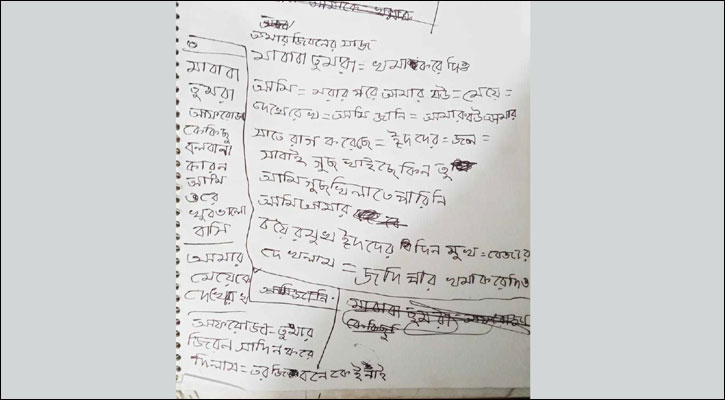 আমার জিবনের সাজ
মাবাবা তুমরা = খমা করে দিও
আমি = মরার পরে আমার বউ = মেয়ে =
দেখে রেখ = আমি জানি = আমার বউ আমার
সাতে রাগ করেছে = ইদদের = জন্য =
সাবাই গুছ খাইছে কিন তু
আমি গুছ খিলাতে পারিনি
আমি আমার
বয়ের মুখ ইদদের দিন মুখ = বেজার
দেখলাম = জদি পার খমা করে দিও
মাবাবা
তুমরা
আফরোজা
কে কিছু
বলবানা
কারন
আমি
ওরে
খুব ভালো
বাসি
আমার
মেয়েকে
দেখে রেখ
আফরোজা = তুমার
জিবন সাদিন করে
দিলাম = তর জিবনে কেই নাই
মাবাবা তুমরা
কে কিছু